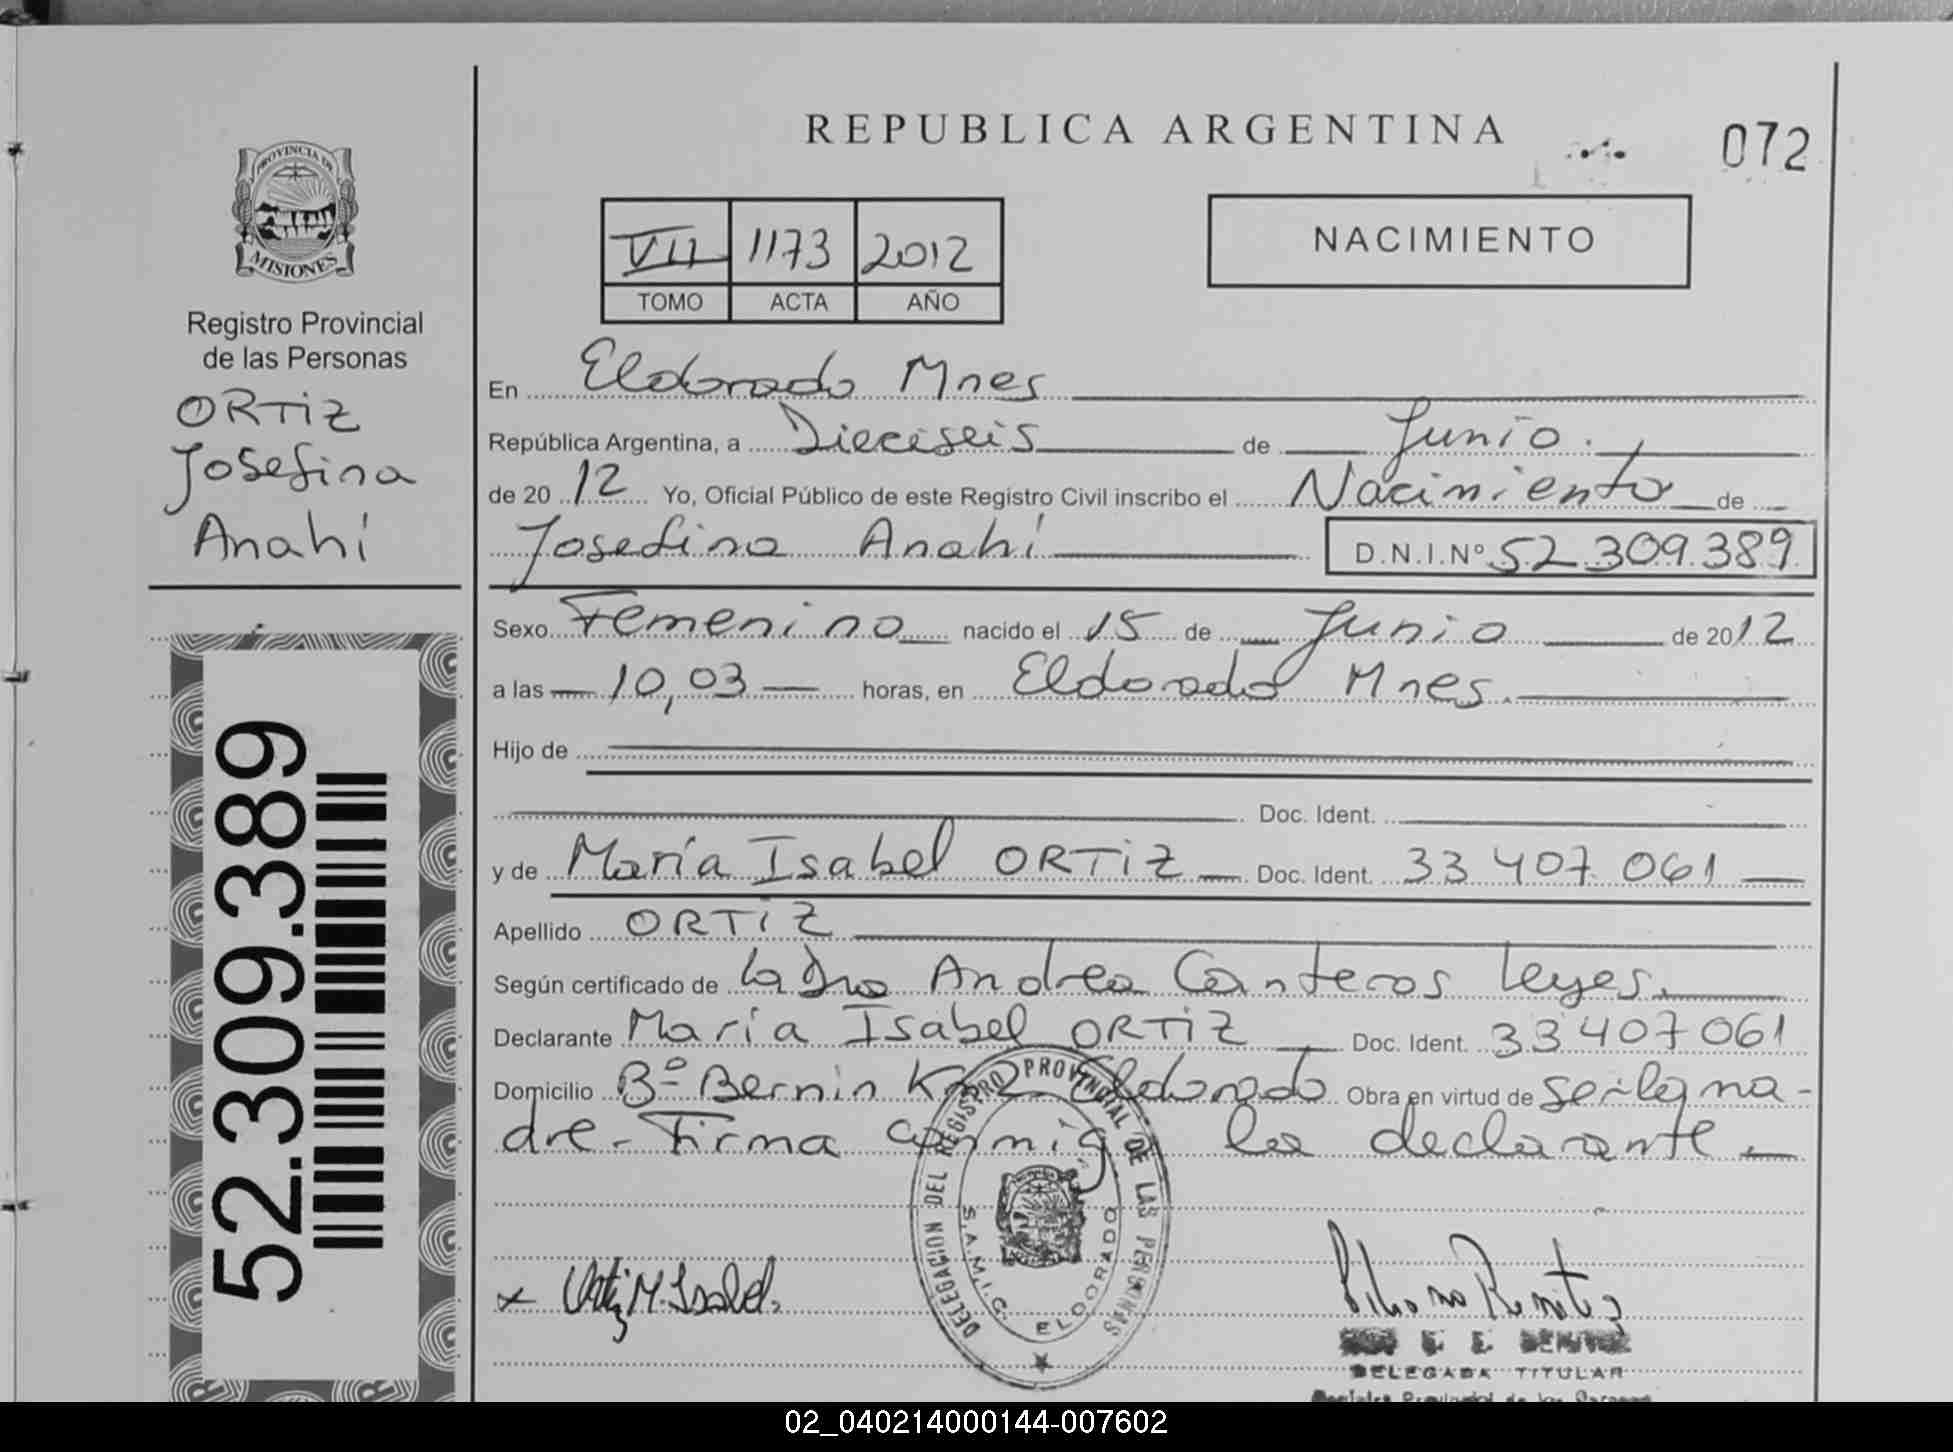 REPUBLICA ARGENTINA
072
PROVINCIA DE
MISIONES
Registro Provincial
de las Personas
ORTiZ
Josefina
Anahí
52.309.389
VII 1173 2012
TOMO ACTA AÑO
NACIMIENTO
En Eldorado Mnes
República Argentina, a Dieciseis de Junio.
de 2012 Yo, Oficial Público de este Registro Civil inscribo el Nacimiento de
Josefina Anahí D.N.I.Nº 52.309.389
Sexo Femenino nacido el 15 de Junio de 2012
a las 10,03 horas, en Eldorado Mnes.
Hijo de
Doc. Ident.
y de María Isabel ORTiZ Doc. Ident. 33 407 061
Apellido ORTiZ
Según certificado de la Dra Andrea Canteros Leyes.
Declarante María Isabel ORTiZ Doc. Ident. 33 407 061
Domicilio Bº Bernin Km2 Eldorado Obra en virtud de ser la ma-
dre - Firma conmigo la declarante
DELEGACION DEL REGISTRO PROVINCIAL DE LAS PERSONAS
S.A.M.I.C. ELDORADO
x Ortiz M. Isabel.
DELEGADA TITULAR
Registro Provincial de las Personas
02_040214000144-007602